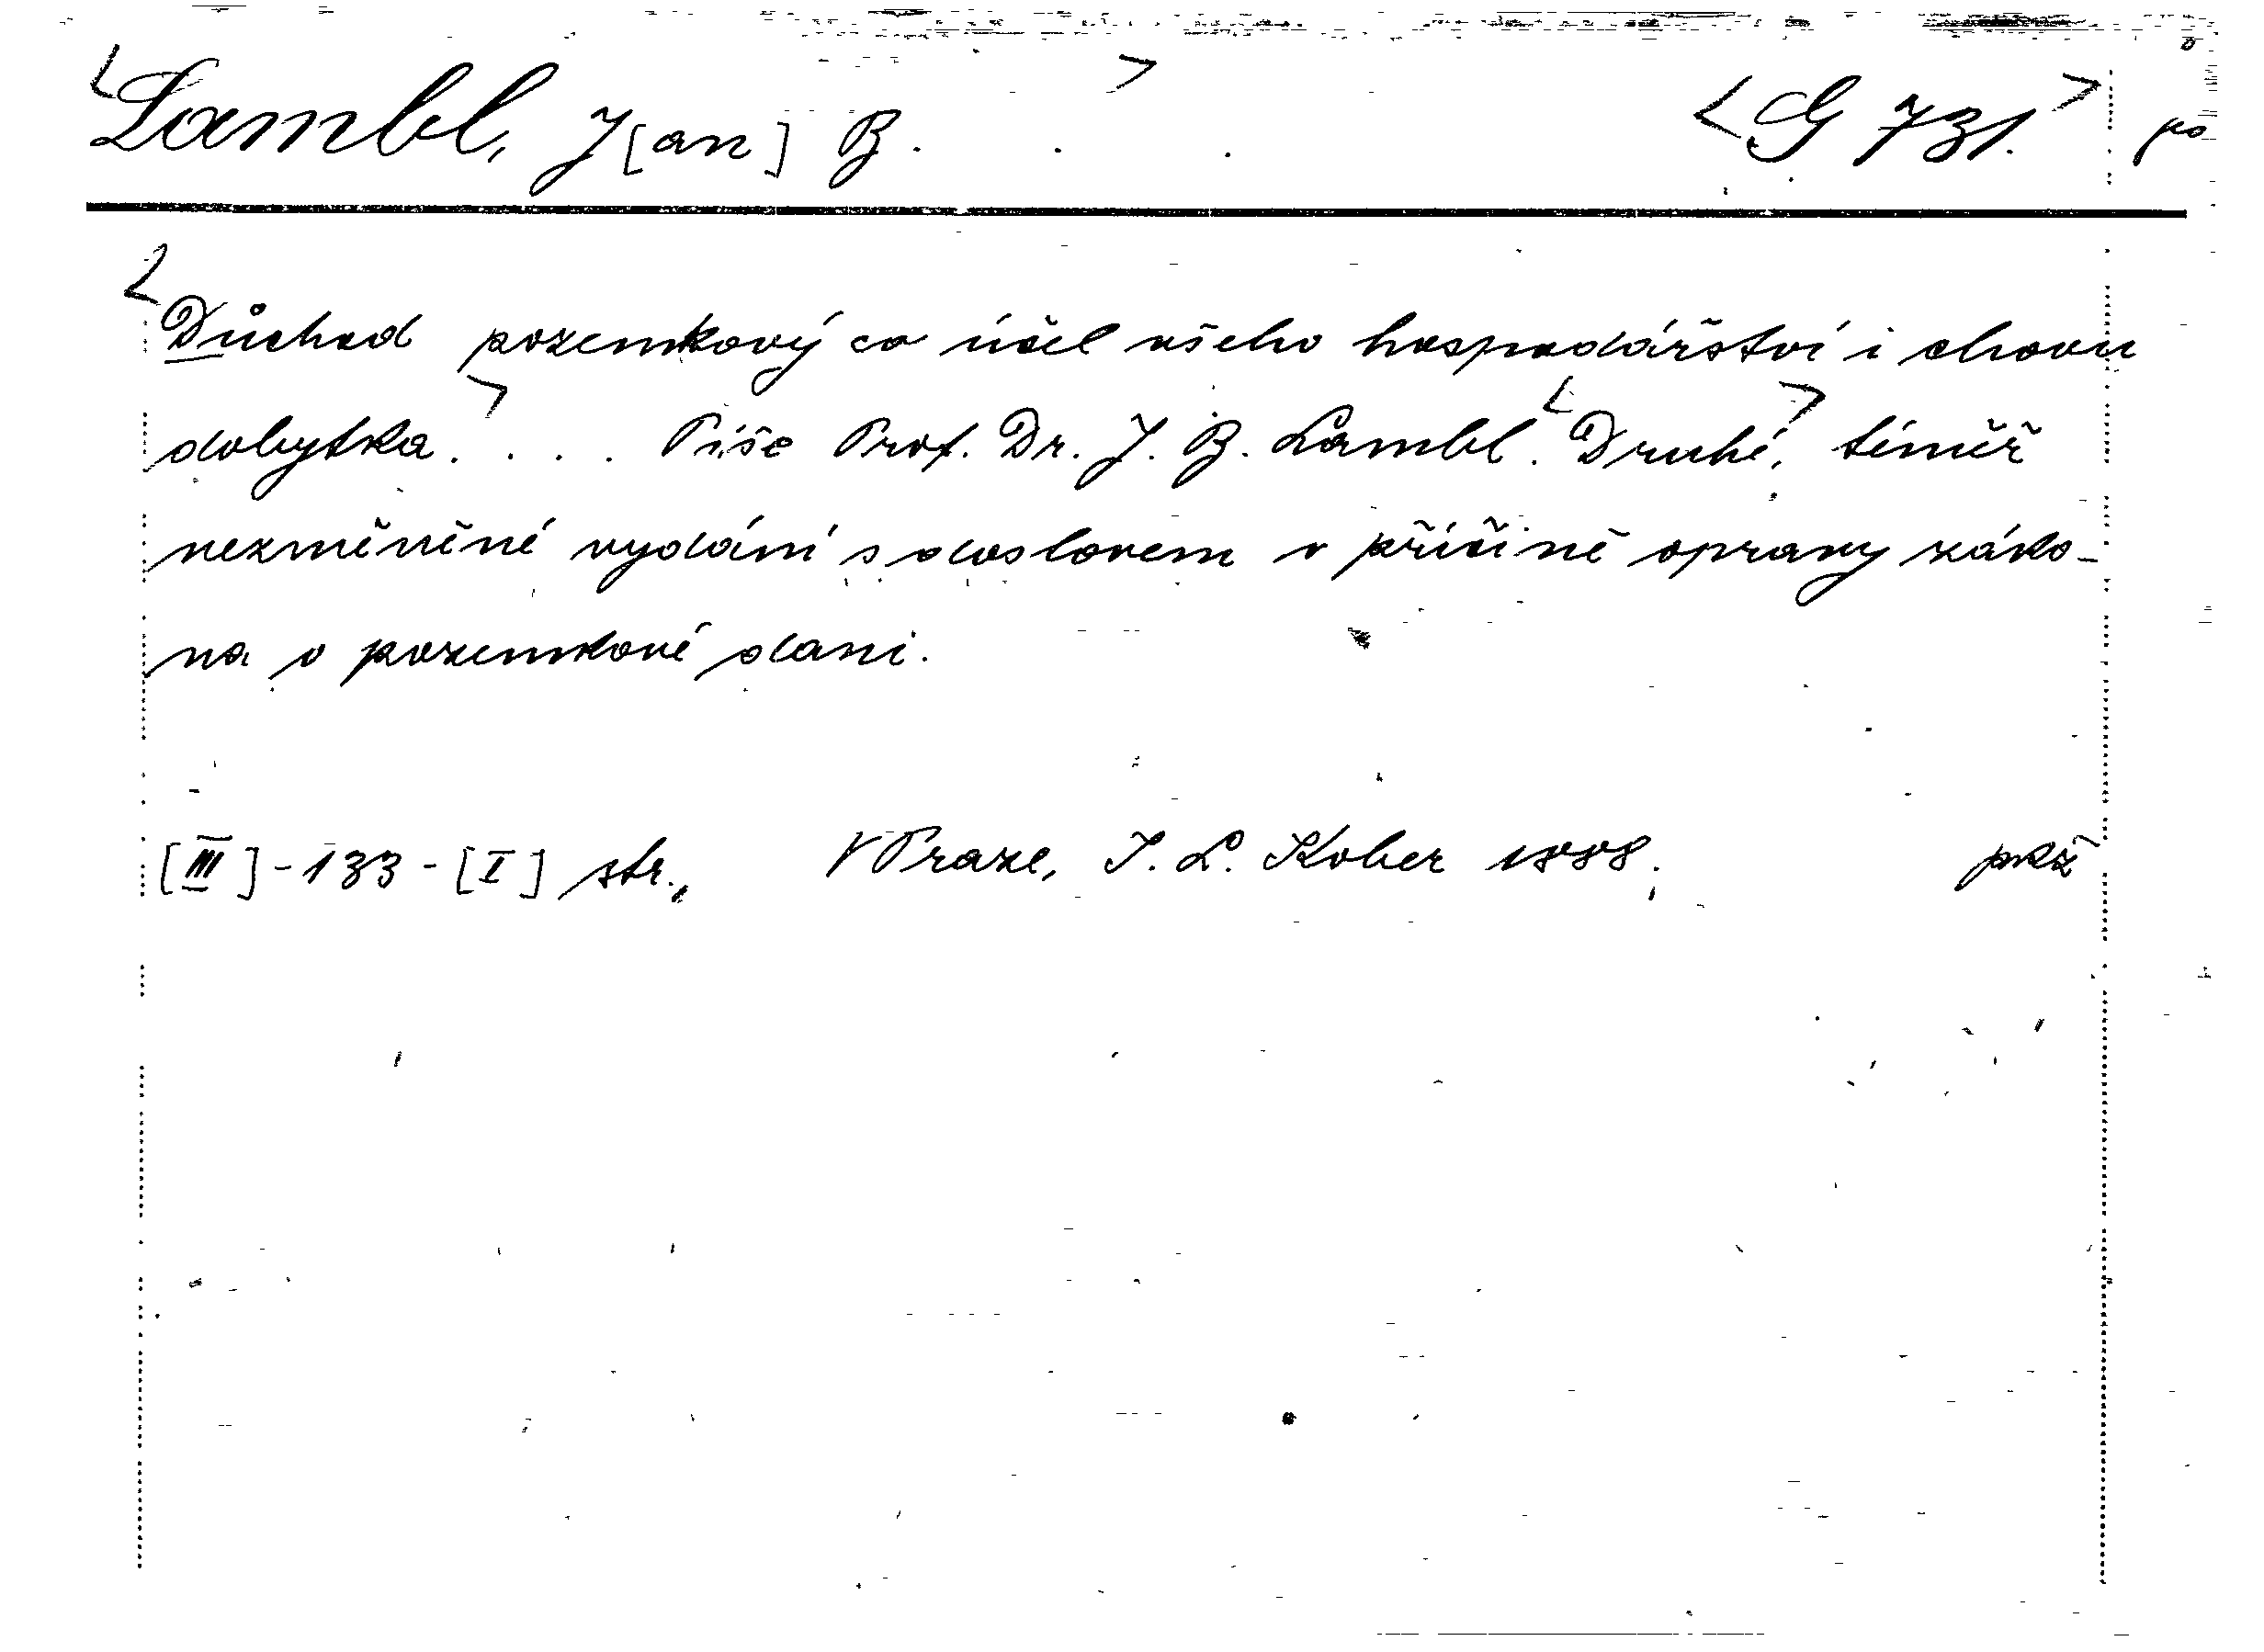 <Lambl, J[an] B. . . > <G 731.> po
<Důchod pozemkový co účel všeho hospodářství i chovu
dobytka.> . . . Píše Prof. Dr. J. B. Lambl. <Druhé,> téměř
nezměněné vydání s doslovem v příčině opravy záko-
na o pozemkové dani.
[III]-133-[I] str., V Praze, I. L. Kober 1888. prkž